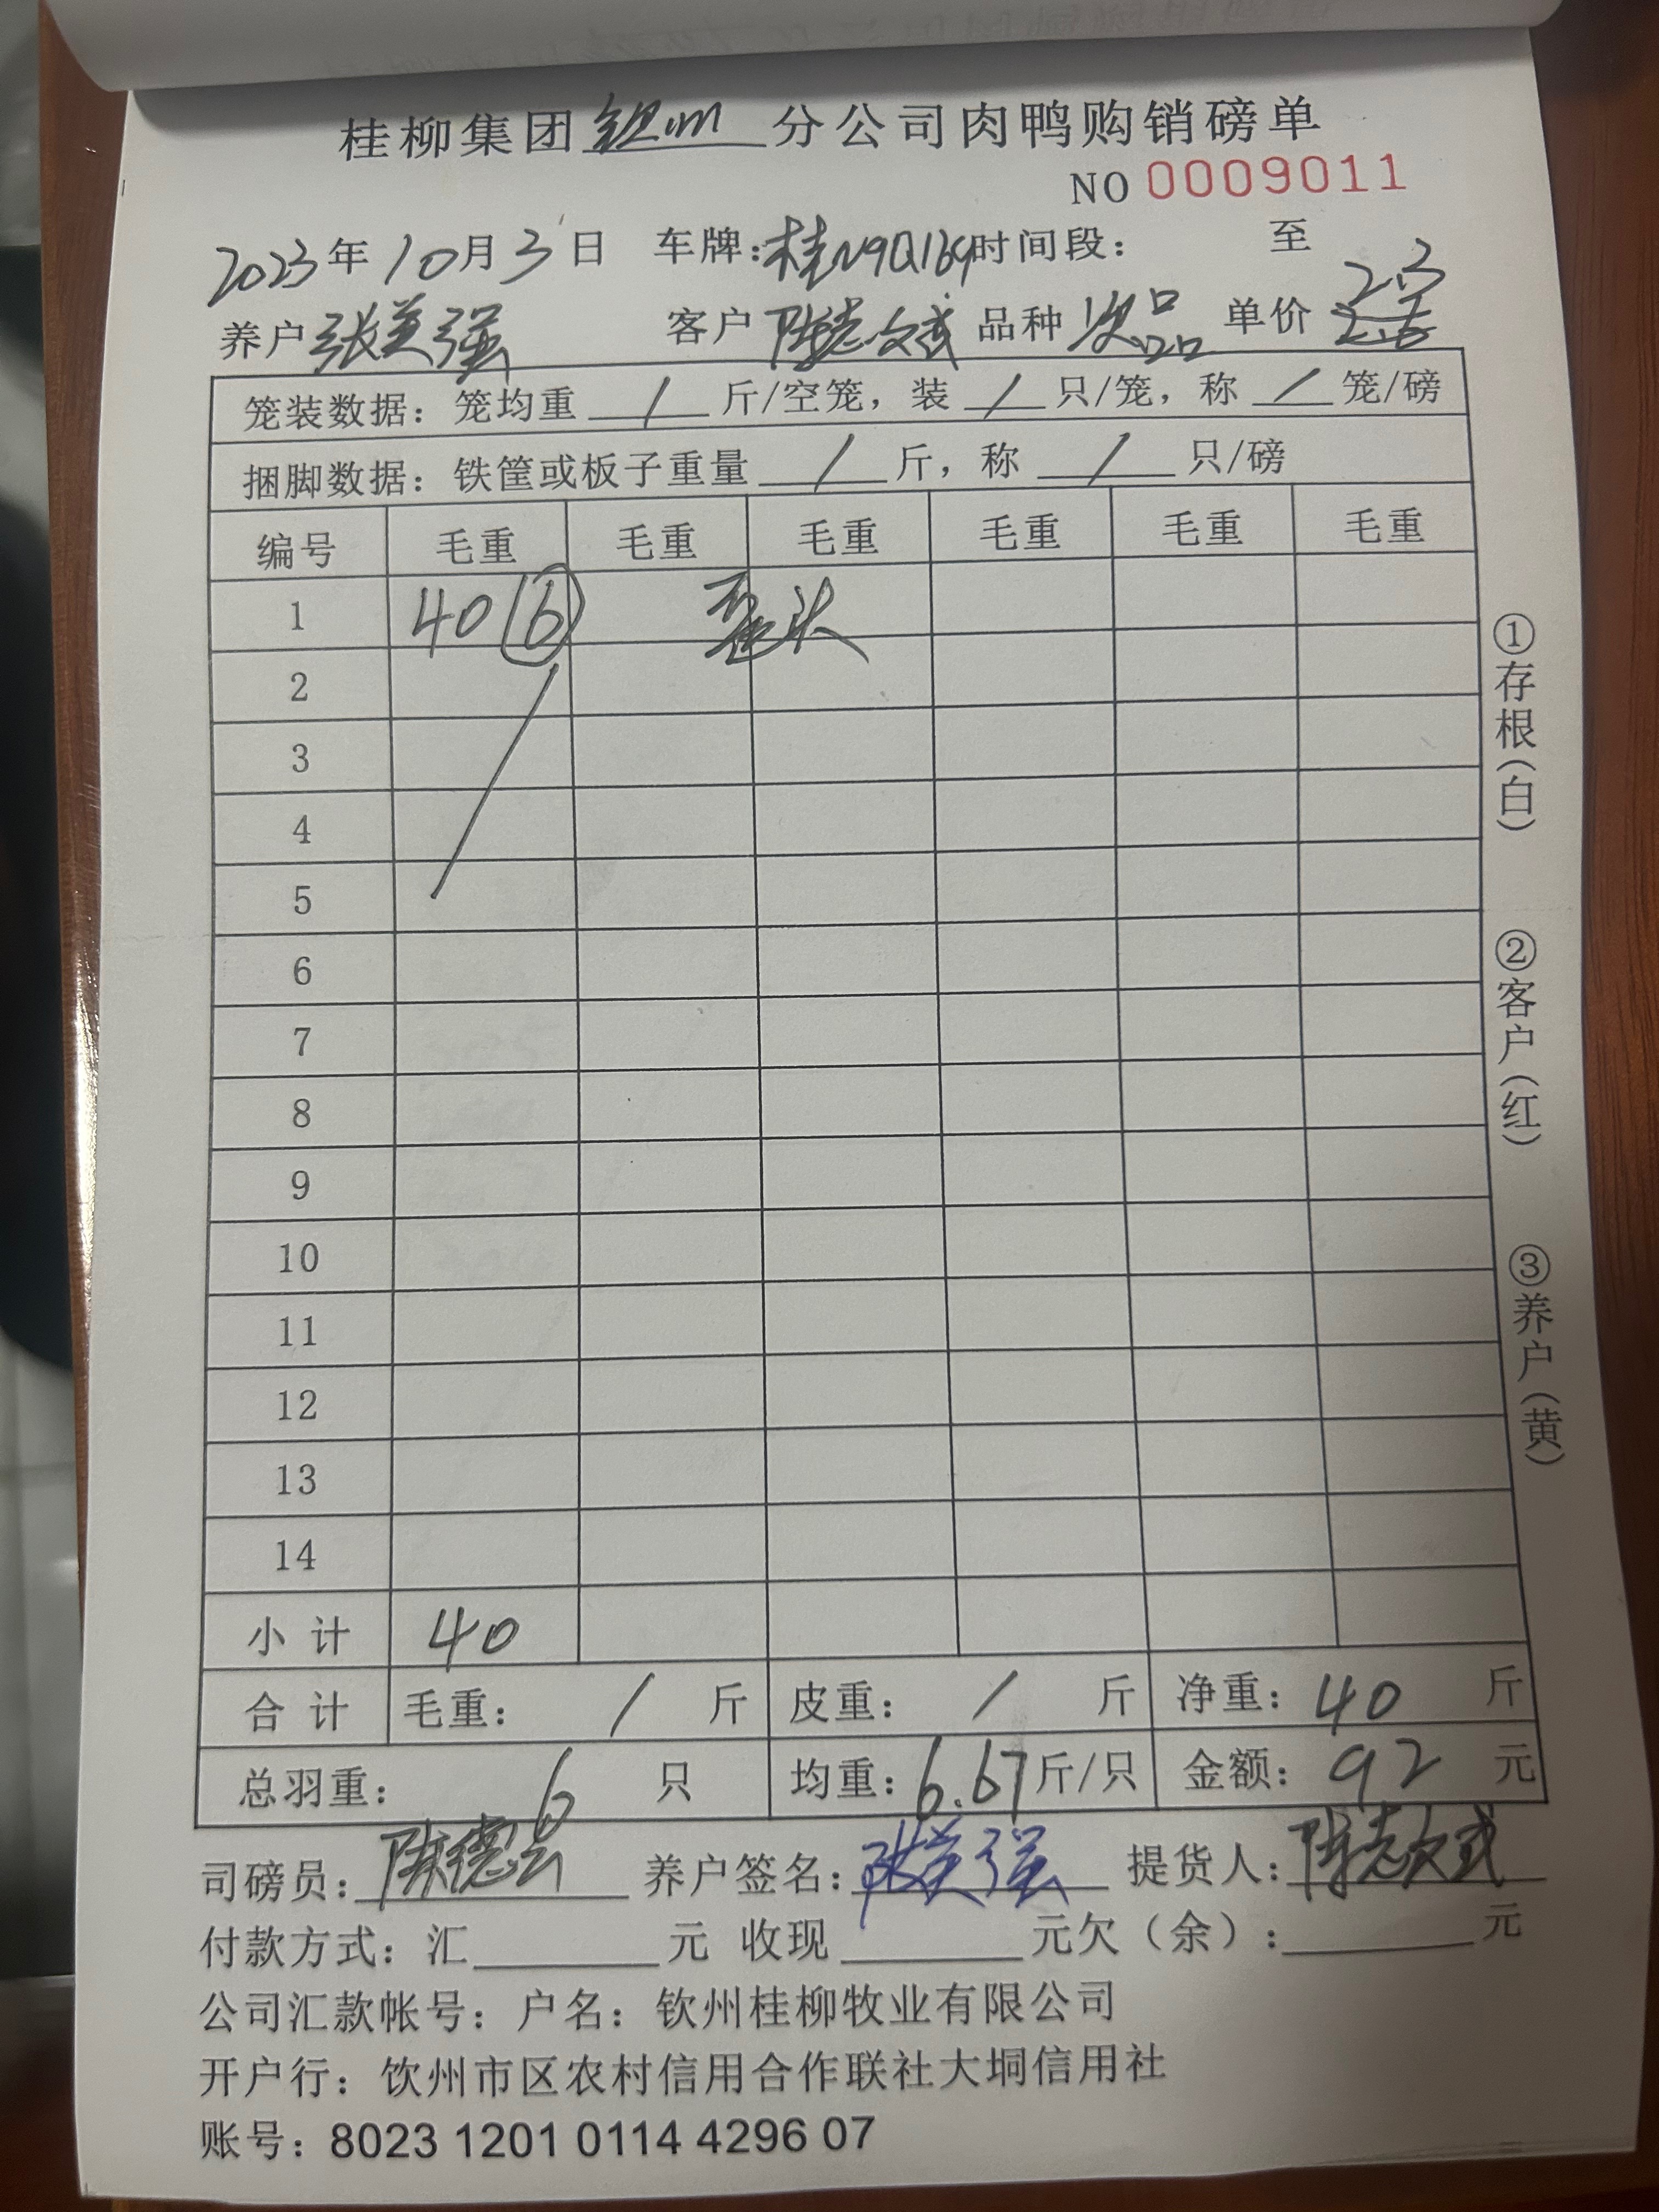 桂柳集团钦州分公司肉鸭购销磅单
NO 0009011
2023年10月3日 车牌:桂N9Q169时间段: 至
2.3
养户张美强 客户陈志斌 品种次品 单价
笼装数据:笼均重 / 斤/空笼,装 / 只/笼,称 / 笼/磅
捆脚数据:铁筐或板子重量 / 斤,称 / 只/磅
编号 毛重 毛重 毛重 毛重 毛重 毛重
1 40 (6) 歪头
2
3
4
5
6
7
8
9
10
11
12
13
14
小计 40
合计 毛重: / 斤 皮重: / 斤 净重:40 斤
总羽重: 6 只 均重:6.67斤/只 金额:92 元
司磅员:陈德云 养户签名:张美强 提货人:陈志斌
付款方式:汇 元 收现 元欠(余): 元
公司汇款帐号:户名:钦州桂柳牧业有限公司
开户行:饮州市区农村信用合作联社大垌信用社
账号:8023 1201 0114 4296 07
①存根(白)
②客户(红)
③养户(黄)